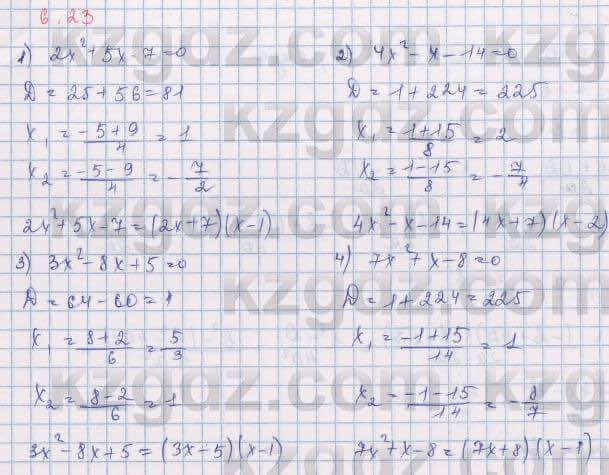 6.23
1) 2x²+5x-7=0
D=25+56=81
x₁=(-5+9)/4=1
x₂=(-5-9)/4=-7/2
2x²+5x-7=(2x+7)(x-1)
2) 4x²-x-14=0
D=1+224=225
x₁=(1+15)/8=2
x₂=(1-15)/8=-7/4
4x²-x-14=(4x+7)(x-2)
3) 3x²-8x+5=0
D=64-60=1
x₁=(8+2)/6=5/3
x₂=(8-2)/6=1
3x²-8x+5=(3x-5)(x-1)
4) 7x²+x-8=0
D=1+224=225
x₁=(-1+15)/14=1
x₂=(-1-15)/14=-8/7
7x²+x-8=(7x+8)(x-1)
kzgdz.com